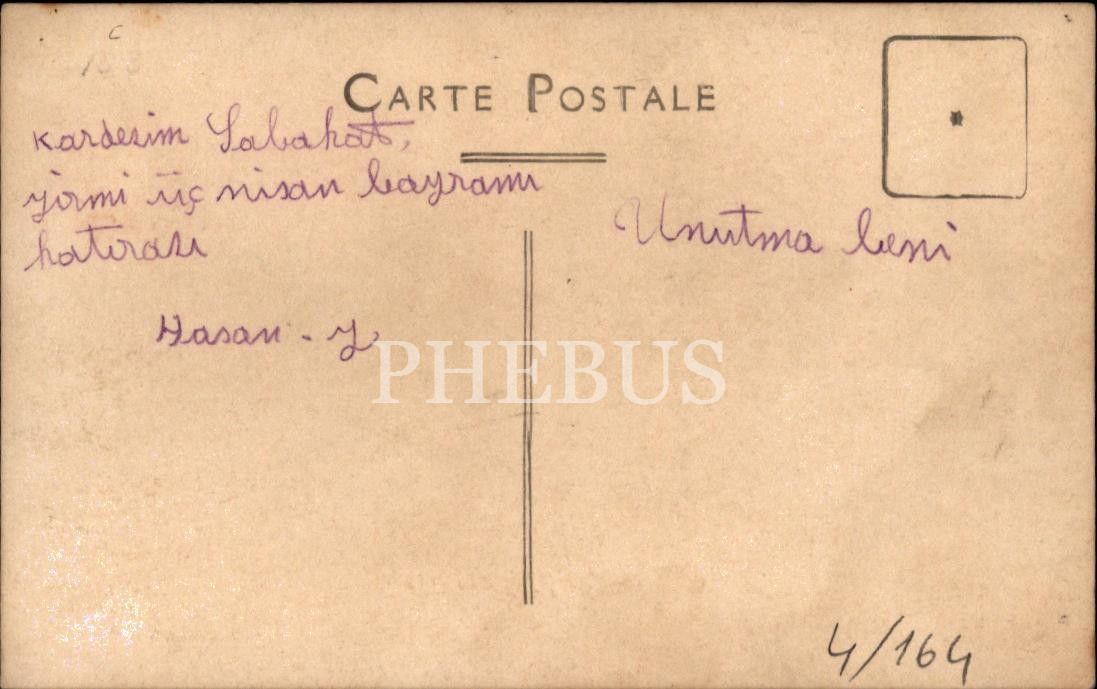 CARTE POSTALE
Kardesim Sabahat,
yirmi üç nisan bayramı
hatırası
Hasan - Y
Unutma beni
PHEBUS
4/164